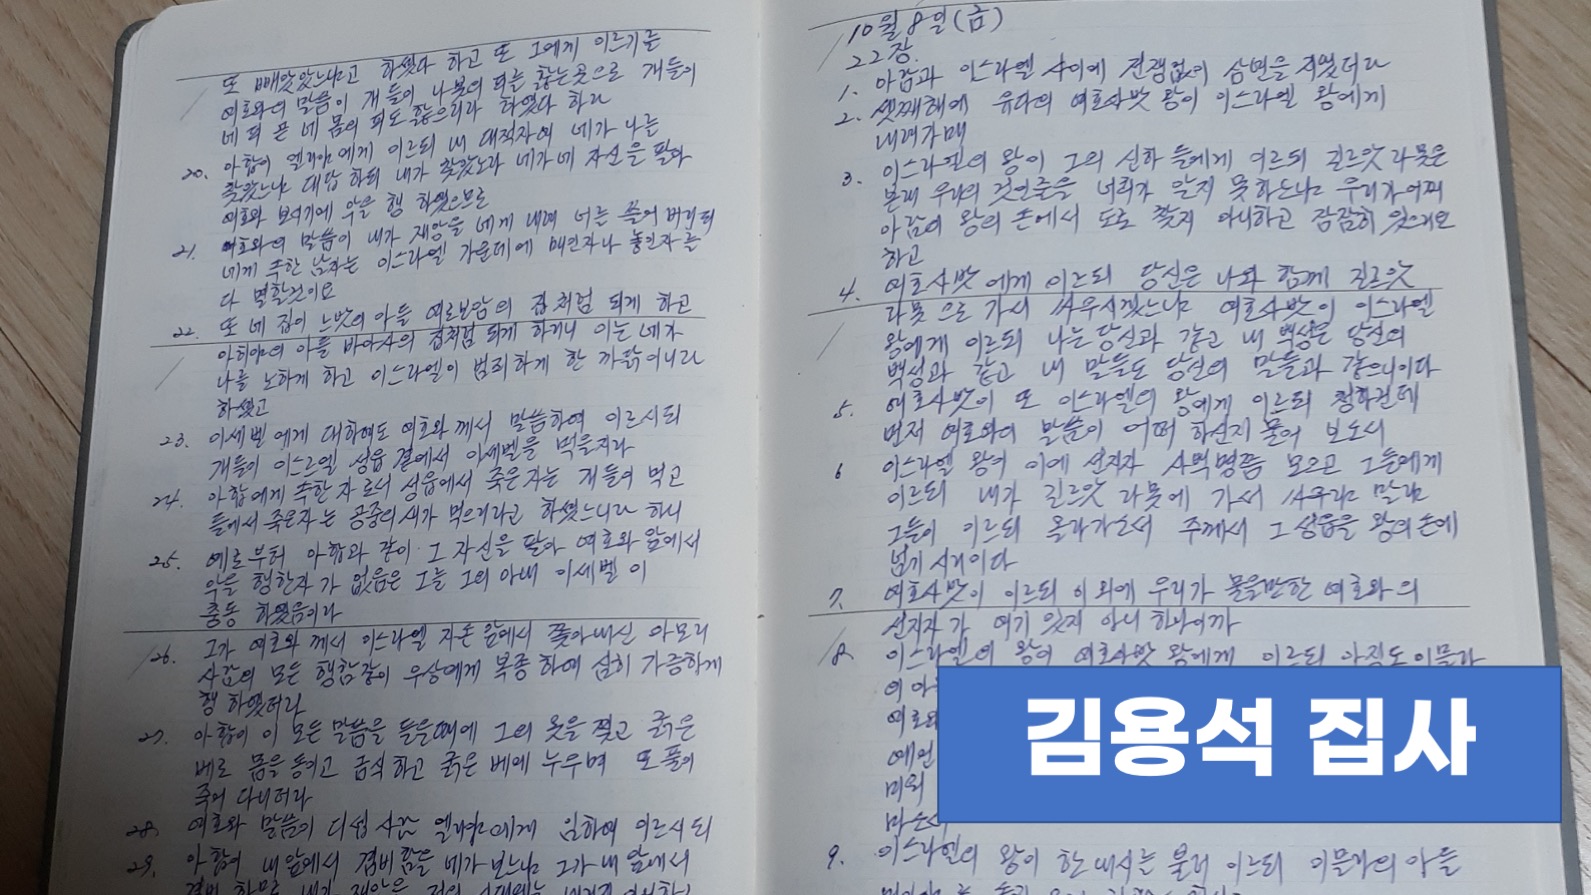 또 빼앗았느냐고 하셨다 하고 또 그에게 이르기를
여호와의 말씀이 개들이 나봇의 피를 핥는곳으로 개들이
네 피 곧 네 몸의 피도 핥으리라 하였다 하라
20. 아합이 엘리야에게 이르되 내 대적자여 네가 나를
찾았느냐 대답 하되 내가 찾았노라 네가 네 자신을 팔아
여호와 보시기에 악을 행 하였으므로
21. 여호와의 말씀이 내가 재앙을 네게 내려 너를 쓸어 버리되
네게 속한 남자는 이스라엘 가운데에 매인자나 놓인자를
다 멸할것이요
22. 또 네 집이 느밧의 아들 여로보암의 집처럼 되게 하고
아히야의 아들 바아사의 집처럼 되게 하리니 이는 네가
나를 노하게 하고 이스라엘이 범죄하게 한 까닭이니라
하셨고
23. 이세벨에게 대하여도 여호와께서 말씀하여 이르시되
개들이 이스르엘 성읍 곁에서 이세벨을 먹을지라
24. 아합에게 속한 자로서 성읍에서 죽은자는 개들이 먹고
들에서 죽은자는 공중의새가 먹으리라고 하셨느니라 하니
25. 예로부터 아합과 같이 그 자신을 팔아 여호와 앞에서
악을 행한자가 없음은 그를 그의 아내 이세벨이
충동 하였음이라
26. 그가 여호와께서 이스라엘 자손 앞에서 쫓아내신 아모리
사람의 모든 행함같이 우상에게 복종 하여 심히 가증하게
행 하였더라
27. 아합이 이 모든 말씀을 들을때에 그의 옷을 찢고 굵은
베로 몸을 동이고 금식하고 굵은 베에 누우며 또 풀이
죽어 다니더라
28. 여호와 말씀이 디셉 사람 엘리야에게 임하여 이르시되
29. 아합이 내앞에서 겸비함을 네가 보느냐 그가 내 앞에서
10월 8일 (금)
22장.
1. 아람과 이스라엘 사이에 전쟁없이 삼년을 지냈더라
2. 셋째해에 유다의 여호사밧 왕이 이스라엘 왕에게
내려가매
3. 이스라엘의 왕이 그의 신하 들에게 이르되 길르앗 라못은
본래 우리의 것인줄을 너희가 알지 못하느냐 우리가 어찌
아람의 왕의 손에서 도로 찾지 아니하고 잠잠히 있으리요
하고
4. 여호사밧에게 이르되 당신은 나와 함께 길르앗
라못으로 가서 싸우시겠느냐 여호사밧이 이스라엘
왕에게 이르되 나는 당신과 같고 내 백성은 당신의
백성과 같고 내 말들도 당신의 말들과 같으니이다
5. 여호사밧이 또 이스라엘의 왕에게 이르되 청하건데
먼저 여호와의 말씀이 어떠 하신지 물어 보소서
6 이스라엘 왕이 이에 선지자 사백명쯤 모으고 그들에게
이르되 내가 길르앗 라못에 가서 싸우랴 말랴
그들이 이르되 올라가소서 주께서 그 성읍을 왕의 손에
넘기시리이다
7. 여호사밧이 이르되 이 외에 우리가 물을만한 여호와의
선지자가 여기 있지 아니 하니이까
8. 이스라엘의 왕이 여호사밧 왕에게 이르되 아직도 이믈라
의 아
여호와
예언
미워
마소서
김용석 집사
9. 이스라엘의 왕이 한 내시를 불러 이르되 이믈라의 아들